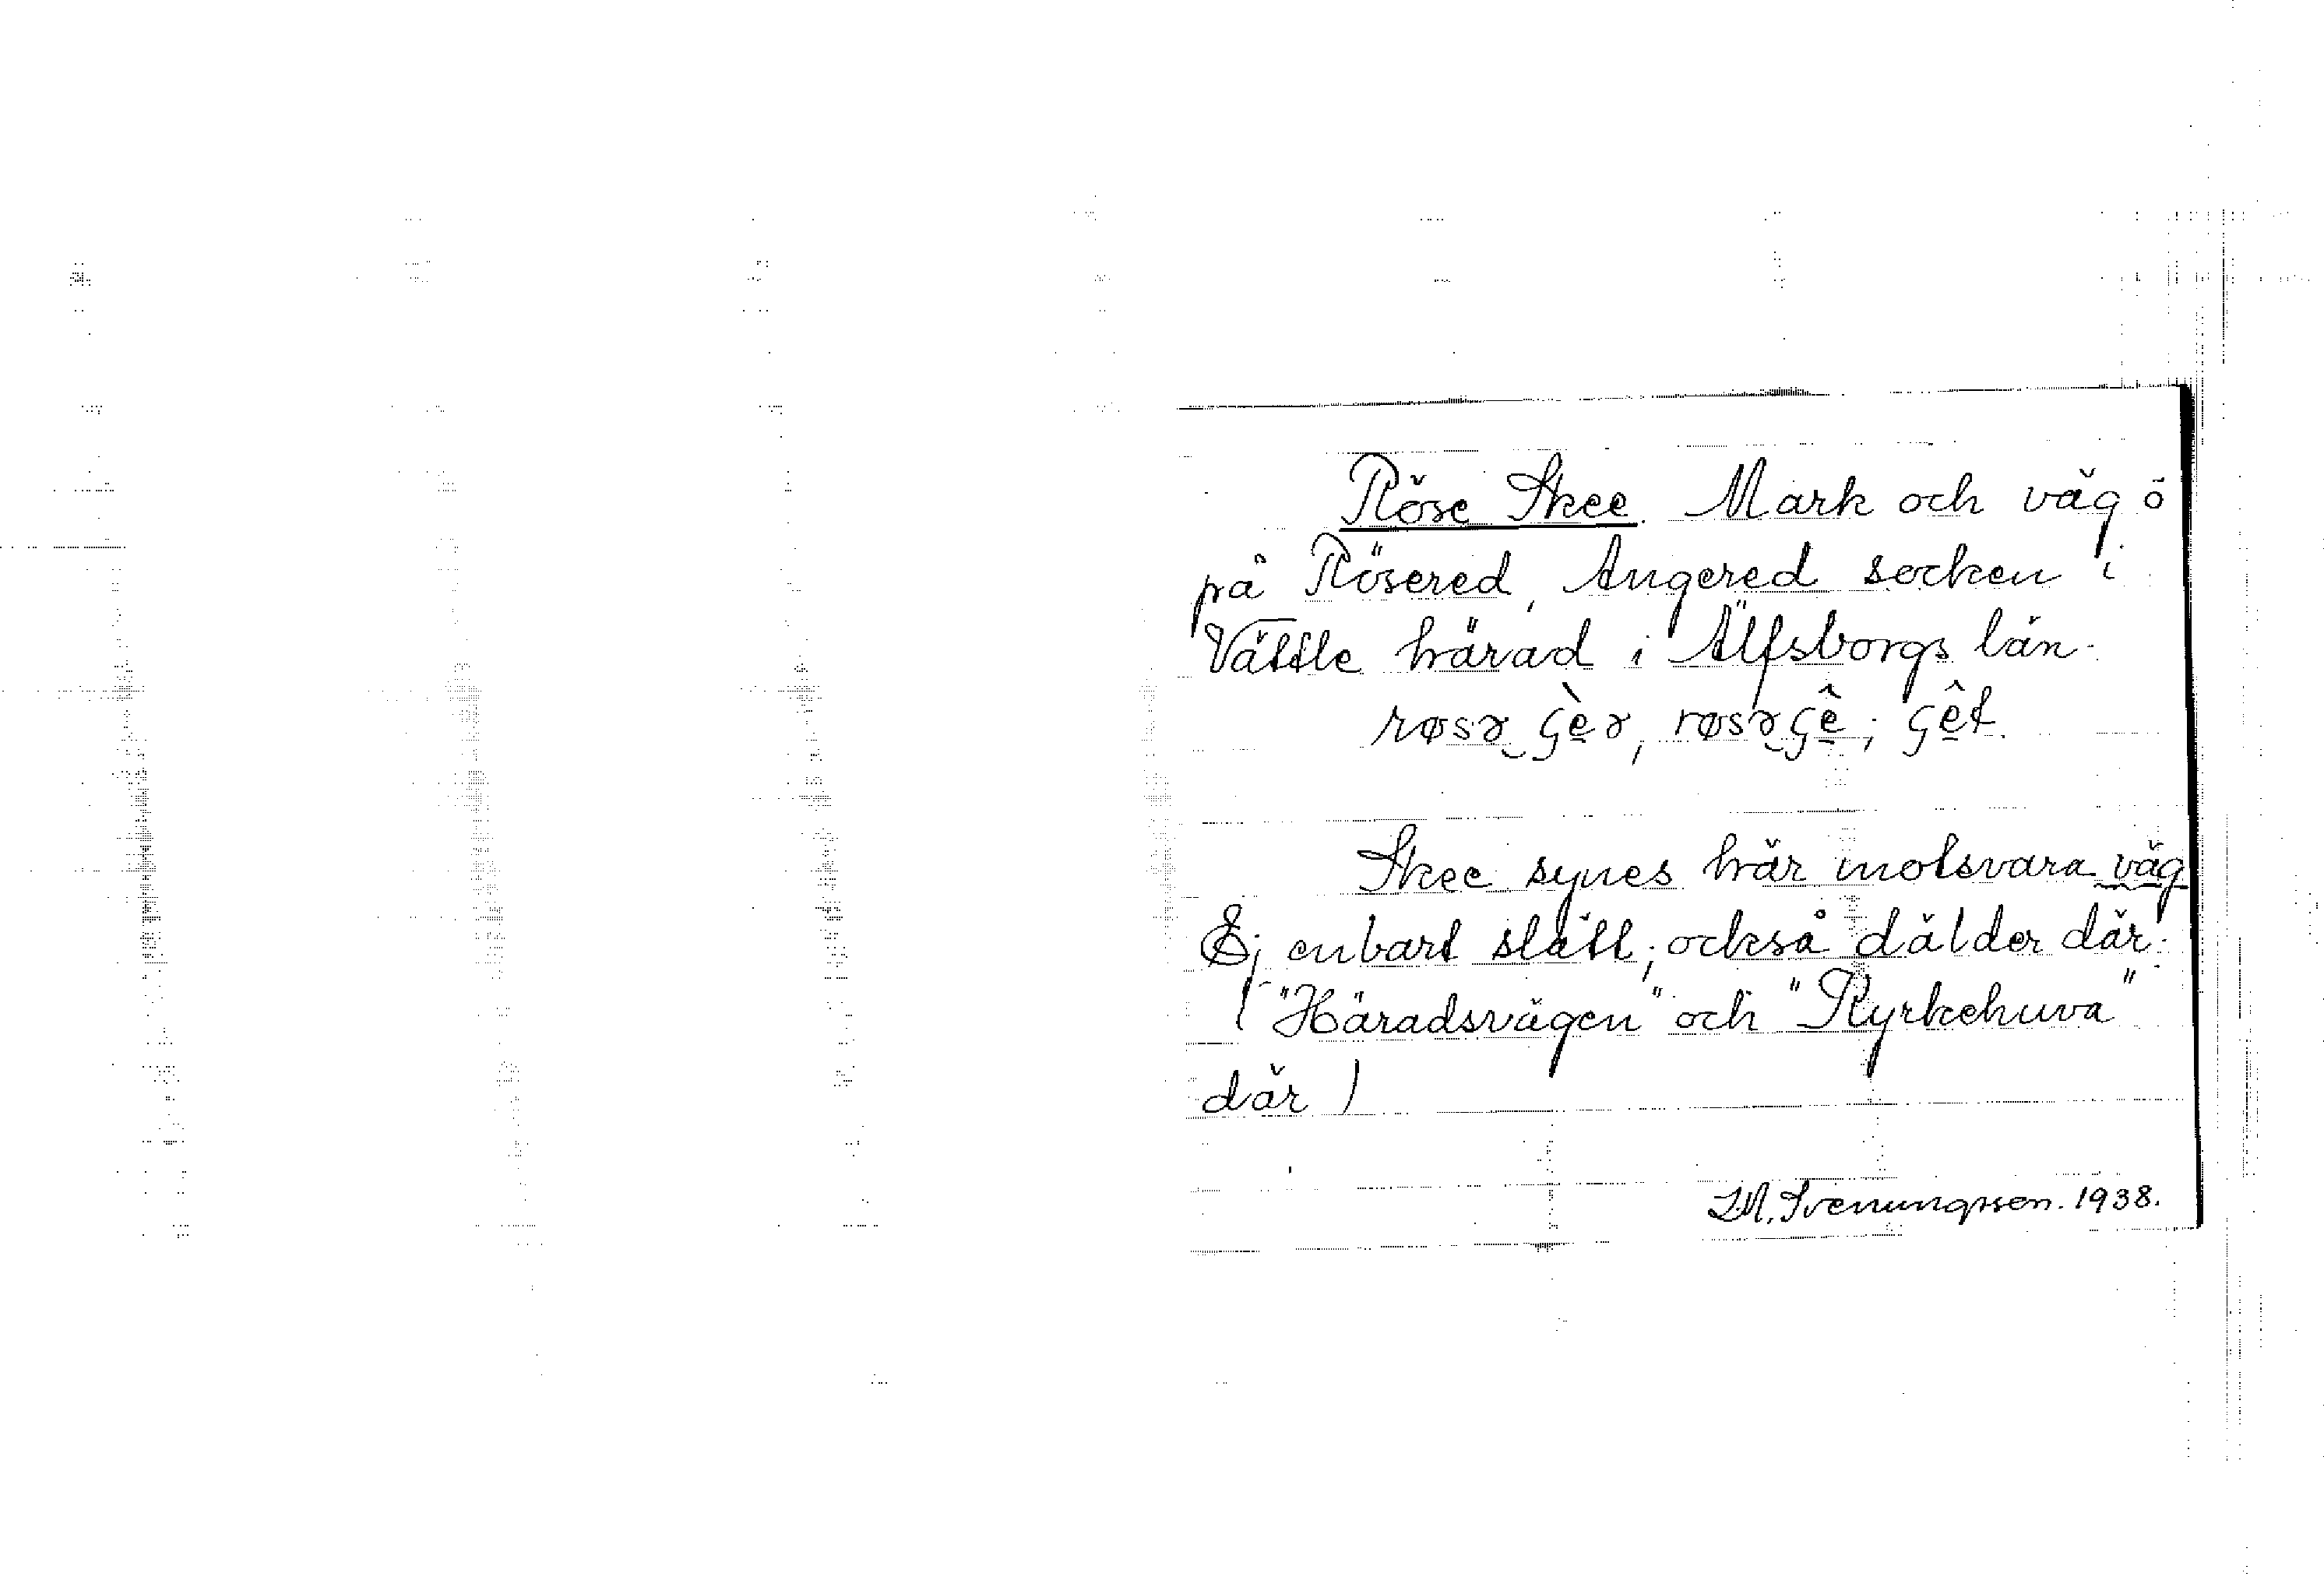 Röse Skee. Mark och väg ö
på Rösered, Angered socken i
Vättle härad i Älfsborgs län.
røsə ʃe̱̍ə, røsəʃê̱; ʃê̱t.
Skee synes här motsvara väg
Ej enbart slätt; också dälder där.
("Häradsvägen" och "Kyrkehuva"
där)
I.M. Svenungsson. 1938.